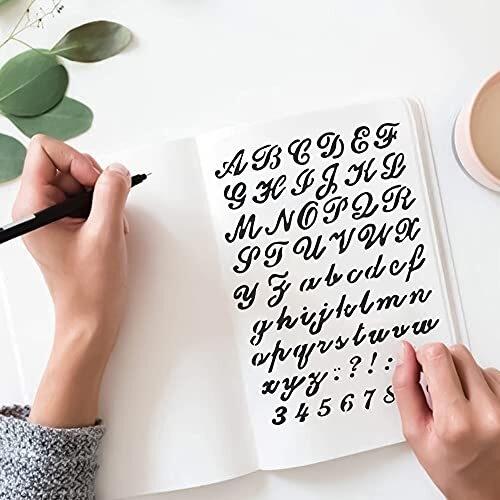 A B C D E F
G H I J K L
M N O P Q R
S T U V W X
Y Z a b c d e f
g h i j k l m n
o p q r s t u v w
x y z : ? ! :
3 4 5 6 7 8